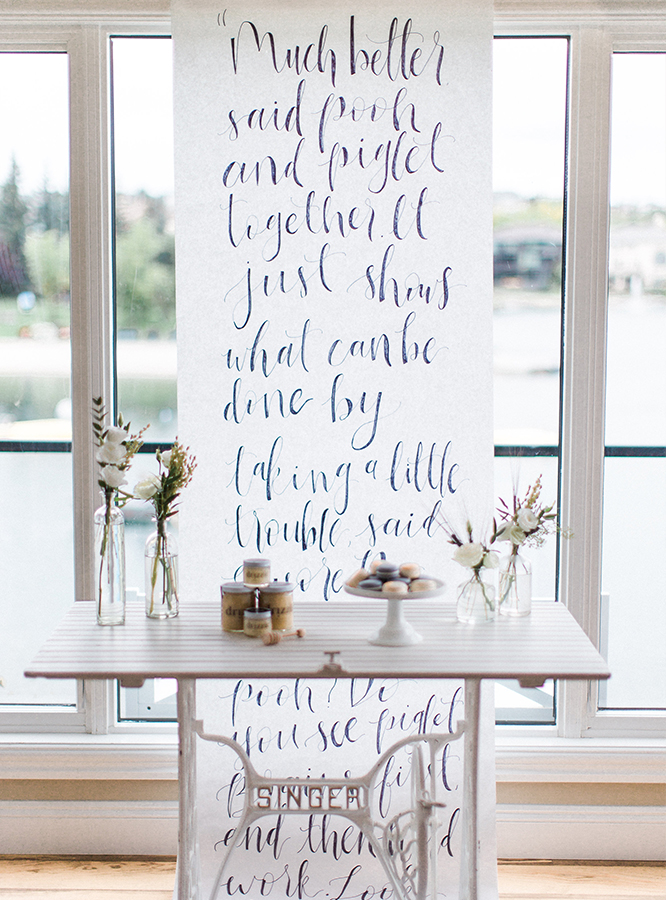 "Much better
said pooh
and piglet
together. It
just shows
what can be
done by
taking a little
trouble, said
pooh? Do
you see piglet
first,
SINGER
and then
work. Look